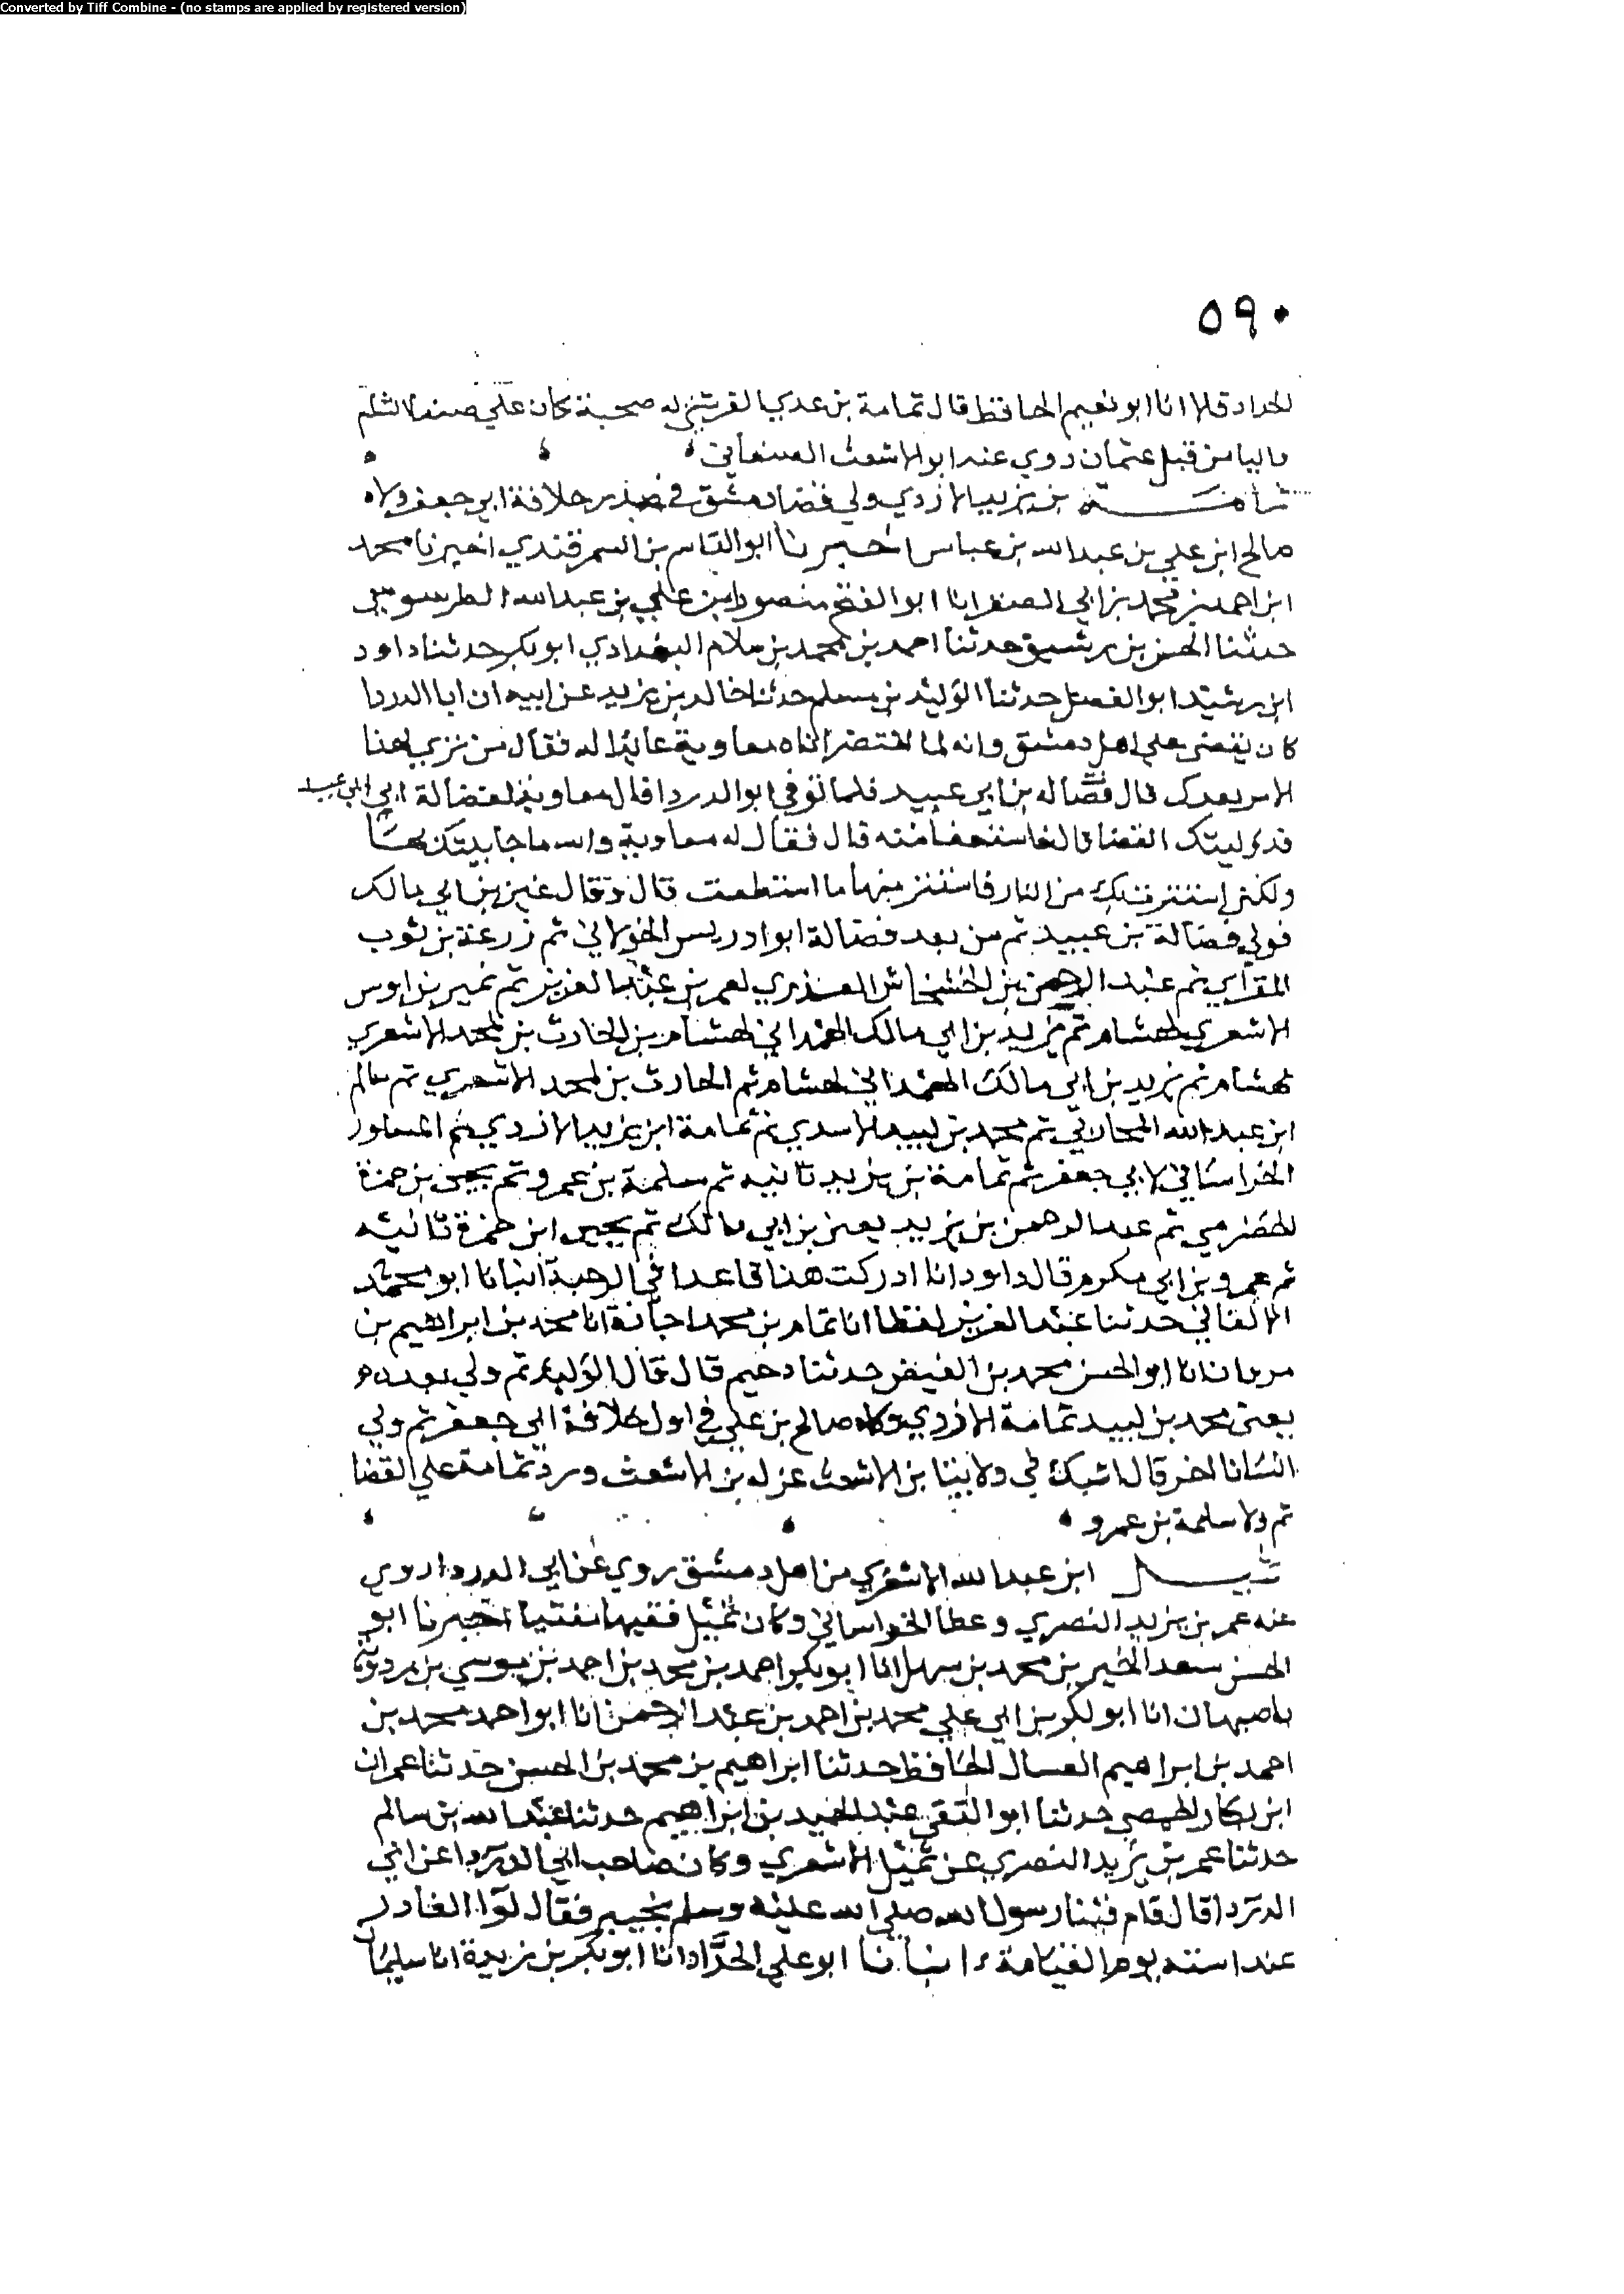 Converted by Tiff Combine - (no stamps are applied by registered version)
٥٩٠
الحداد قالا انا ابو نعيم الحافظ قال ثمامة بن عدي القرشي له صحبة كان على صنعا الشام
واليا من قبل عثمان روي عنه ابو الاشعث الصنعاني
ثمامة بن يزيد الازدي ولي قضا دمشق في صدر خلافة ابي جعفر ولاه
صالح ابن علي بن عبد الله بن عباس اخبرنا ابو القاسم بن السمرقندي اخبرنا محمد
ابن احمد بن محمد بن ابي الصقر انا ابو الفتح منصور ابن علي بن عبد الله الطرسوسي
حدثنا الحسن بن رشيق حدثنا احمد بن محمد بن سلام البغدادي ابو بكر حدثنا داود
ابن رشيد ابو الفضل حدثنا الوليد بن مسلم حدثنا خالد بن يزيد عن ابيه ان ابا الدردا
كان يقضي على اهل دمشق وانه لما احتضر اتاه معاوية عائدا له فقال من تري لهذا
الامر بعدك قال فضاله بن ابي عبيد فلما توفي ابو الدردا قال معاوية لفضالة ابي عبيد
قد وليتك القضا قال فاستعفا منه قال فقال له معاوية والله ما حابيتك بها
ولكني استترت بك من النار فاستتر منها ما استطعت قال وقال غير بن ابي مالك
فولي فضالة بن عبيد ثم من بعد فضالة ابو ادريس الخولاني ثم زرعة بن ثوب
المقرايي ثم عبد الرحمن بن الخشخاش العذري لعمر بن عبد العزيز ثم نمير بن اوس
الاشعري لهشام ثم يزيد بن ابي مالك الهمداني لهشام بن الحارث بن محمد الاشعري
لهشام ثم يزيد بن ابي مالك الهمداني لهشام ثم الحارث بن محمد الاشعري ثم سالم
ابن عبد الله المحاربي ثم محمد بن لبيد الاسدي ثم ثمامة ابن يزيد الازدي ثم المساور
الخراساني لابي جعفر ثم ثمامة بن يزيد ثانيه ثم سلمة بن عمرو ثم يحيى بن حمزة
الحضرمي ثم عبد الرحمن بن يزيد يعني بن ابي مالك ثم يحيى ابن حمزة ثانيه
ثم عمرو بن ابي مكرم قال داود انا ادركت هذا قاعدا في الرحبة انبانا ابو محمد
الاكفاني حدثنا عبد العزيز لفظا انا تمام بن محمد اجازة انا محمد بن ابراهيم بن
مروان انا ابو الحسن محمد بن الفيض حدثنا دحيم قال قال الوليد ثم ولي بعده
يعني محمد بن لبيد ثمامة الازدي ولاه صالح بن علي في اول خلافة ابي جعفر ثم ولي
انسانا اخر قال اشبك في ولابينا بن الاشعث عزله بن الاشعث ورد ثمامة على القضا
ثم ولا سلمة بن عمرو
ثميل ابن عبد الله الاشعري من اهل دمشق روي عن ابي الدردا روي
عنه عمر بن يزيد النصري وعطا الخراساني وكان ثميل فقيها مفتيا اخبرنا ابو
الحسن سعد الخير بن محمد بن سهل انا ابو بكر احمد بن محمد بن احمد بن موسي بن مردويه
باصبهان انا ابو بكر بن ابي علي محمد بن احمد بن عبد الرحمن انا ابو احمد محمد بن
احمد بن ابراهيم العسال الحافظ حدثنا ابراهيم بن محمد بن الحسن حدثنا عمران
ابن بكار الحمصي حدثنا ابو التقى عبد الحميد بن ابراهيم حدثنا عبد الله بن سالم
حدثنا عمر بن يزيد النصري عن ثميل الاشعري وكان صاحب ابي الدردا عن ابي
الدردا قال قام فينا رسول الله صلى الله عليه وسلم بخيبر فقال لوا الغادر
عند استه يوم القيامة انبانا ابو علي الحداد انا ابو بكر بن ريدة انا سليمان